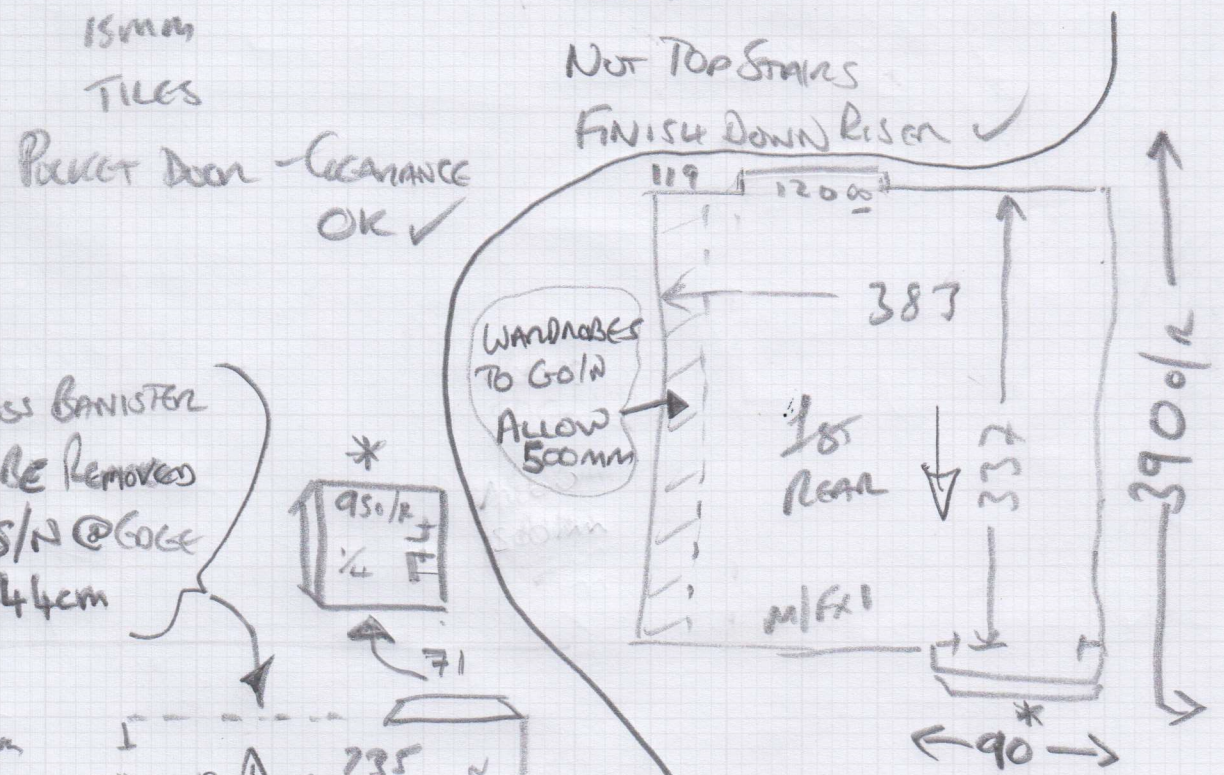 15mm
TILES
POCKET DOOR - CLEARANCE
OK ✓
NOT TOP STAIRS
FINISH DOWN RISER ✓
119
1200
383
WARDROBES
TO GO/N
ALLOW
500MM
1ST
REAR
337
390 O/R
M/FX1
*
90
BANISTER
BE REMOVED
S/N @ EDGE
44cm
*
950/R
1/4
T94
71
235